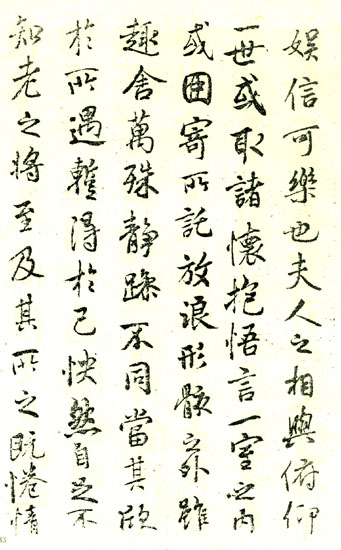 娛信可樂也夫人之相與俯仰
一世或取諸懷抱悟言一室之內
或因寄所託放浪形骸之外雖
趣舍萬殊靜躁不同當其欣
於所遇蹔得於己怏然自足不
知老之將至及其所之既惓情
33